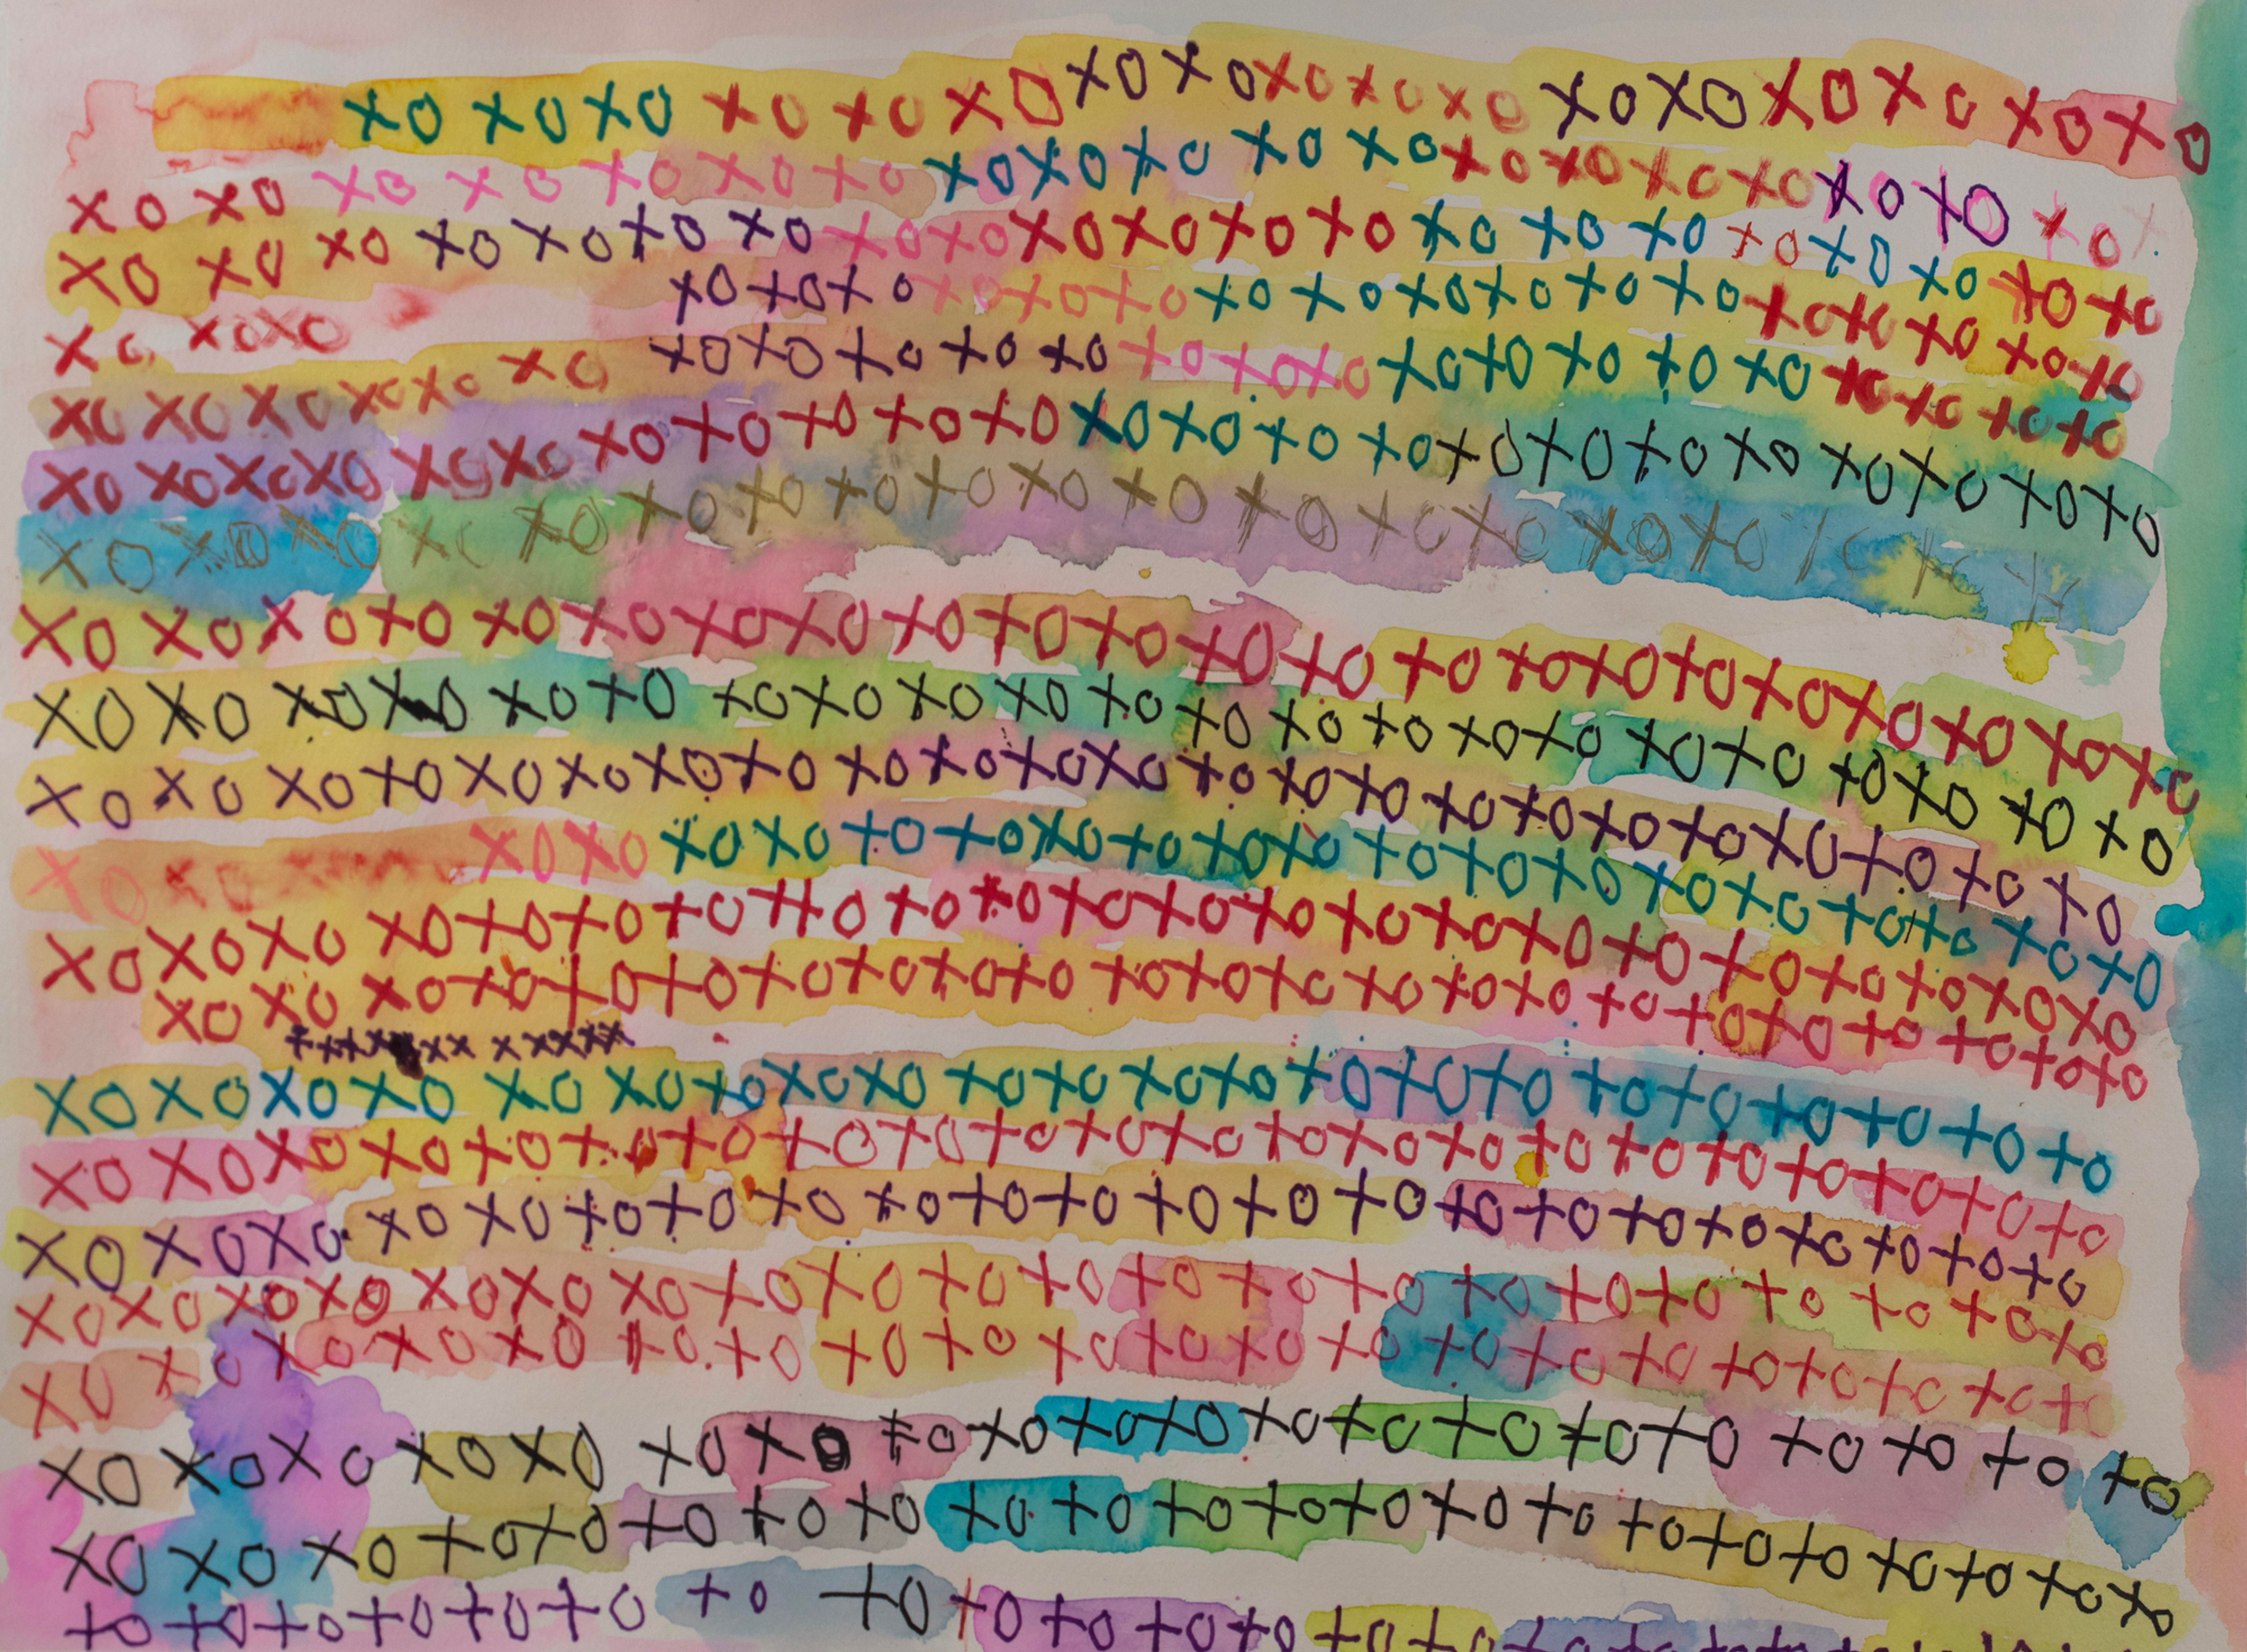 XOXOXOXOXOXOXOXOXOXOXOXOXOXOXOXOXO
XOXOXOXOXOXOXOXOXOXOXOXOXOXOXOXOXOXOXO
XOXOXOXOXOXOXOXOXOXOXOXOXOXOXOXOXOXOXOXOXO
XOXOXOXOXOXOXOXOXOXOXOXOXOXOXOXOXOXOXOXO
XOXOXOXOXOXOXOXOXOXOXOXOXOXOXOXOXOXOXOXOXOXOXO
XOXOXOXOXOXOXOXOXOXOXOXOXOXOXOXOXOXOXOXOXOXOXO
XOXOXOXOXOXOXOXOXOXOXOXOXOXOXOXOXOXO
XOXOXOXOXOXOXOXOXOXOXOXOXOXOXOXOXOXOXOXOXOXO
XOXOXOXOXOXOXOXOXOXOXOXOXOXOXOXOXOXOXOXOXOXO
XOXOXOXOXOXOXOXOXOXOXOXOXOXOXOXOXOXOXOXOXOXOXO
XOXOXOXOXOXOXOXOXOXOXOXOXOXOXOXOXOXOXOXOXO
XOXOXOXOXOXOXOXOXOXOXOXOXOXOXOXOXOXOXOXOXOXO
XOXOXOXOXOXOXOXOXOXOXOXOXOXOXOXOXOXOXOXOXOXOXO
XXXX XXX XXXXXX
XOXOXOXOXOXOXOXOXOXOXOXOXOXOXOXOXOXOXOXOXOXO
XOXOXOXOXOXOXOXOXOXOXOXOXOXOXOXOXOXOXOXOXOXO
XOXOXOXOXOXOXOXOXOXOXOXOXOXOXOXOXOXOXOXOXOXO
XOXOXOXOXOXOXOXOXOXOXOXOXOXOXOXOXOXOXOXOXO
XOXOXOXOXOXOXOXOXOXOXOXOXOXOXOXOXOXOXOXOXO
XOXOXOXOXOXOXOXOXOXOXOXOXOXOXOXOXOXOXOXO
XOXOXOXOXOXOXOXOXOXOXOXOXOXOXOXOXOXOXOXOXOXO
XOXOXOXOXOXOXOXOXOXOXOXOXOXO